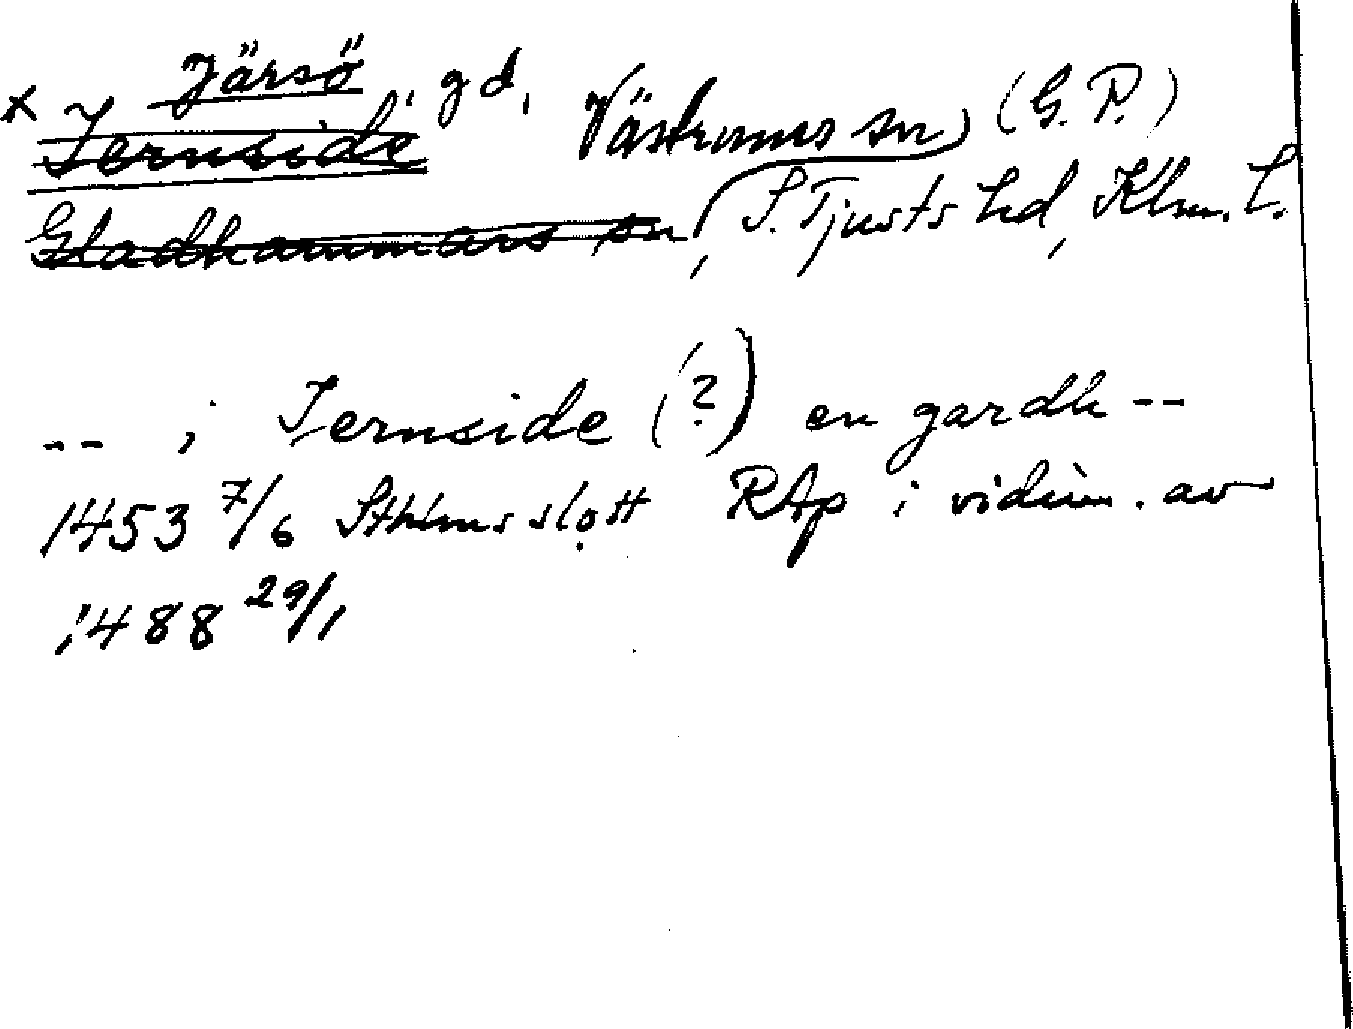 Järsö
x Iernside, gd, Västrums sn (G. P.)
Gladhammars sn, S. Tjusts hd, Klm. l.
-- i Iernside (?) en gardh --
1453 7/6 Sthlms slott RAp i vidim. av
1488 29/1